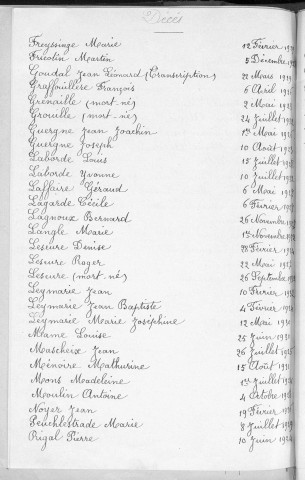 Décès
Freyssinge Marie 12 Février
Fricolin Martin 5 Décembre
Goudal Jean Léonard (Transcription) 22 Mars
Graffouillère François 6 Avril
Grenaille (mort-né) 2 Mai
Grouille (mort-né) 24 Juillet
Guergne Jean Joachin 1er Mai
Guergne Joseph 10 Août
Laborde Louis 15 Juillet
Laborde Yvonne 10 Juillet
Laffaire Géraud 6 Mai
Lagarde Cécile 6 Février
Lagnoux Bernard 26 Novembre
Langle Marie 1er Novembre
Leseure Denise 28 Février
Leseure Roger 22 Mai
Leseure (mort né) 26 Septembre
Leymarie Jean 10 Février
Leymarie Jean Baptiste 4 Février
Leymarie Marie Joséphine 12 Mai
Mame Louise 25 Juin
Mascheix Jean 26 Juillet
Mémoire Mathurine 15 Août
Mons Madeleine 1er Juillet
Moulin Antoine 4 Octobre
Noyer Jean 19 Février
Peuchlestrade Marie 8 Juillet
Rigal Pierre 10 Juin